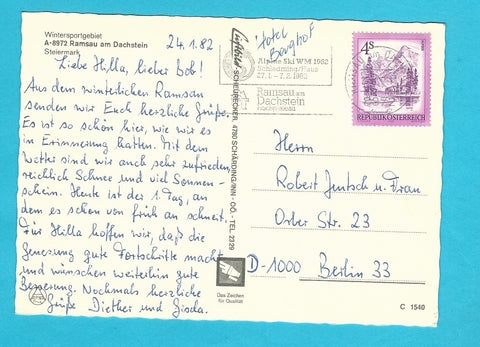 Wintersportgebiet
A-8972 Ramsau am Dachstein
Steiermark
24.1.82
Liebe Hilla, lieber Bob!
Aus dem winterlichen Ramsau
senden wir Euch herzliche Grüße.
Es ist so schön hier, wie wir es
in Erinnerung hatten. Mit dem
Wetter sind wir auch sehr zufrieden,
reichlich Schnee und viel Sonnen-
schein. Heute ist der 1. Tag, an
dem es schon von früh an schneit.
Für Hilla hoffen wir, daß die
Genesung gute Fortschritte macht
und wünschen weiterhin gute
Besserung. Nochmals herzliche
Grüße Diether und Gisela.
Hotel
Berghof
Alpine Ski WM 1982
Schladming/Haus
27.1. - 7.2.1982
Ramsau am
Dachstein
SCHEURECKER, 4780 SCHÄRDING/INN - OÖ. - TEL. 2329
4S
REPUBLIK ÖSTERREICH
Herrn
Robert Jentsch u. Frau
Oster Str. 23
D-1000 Berlin 33
Das Zeichen
für Qualität
C 1540